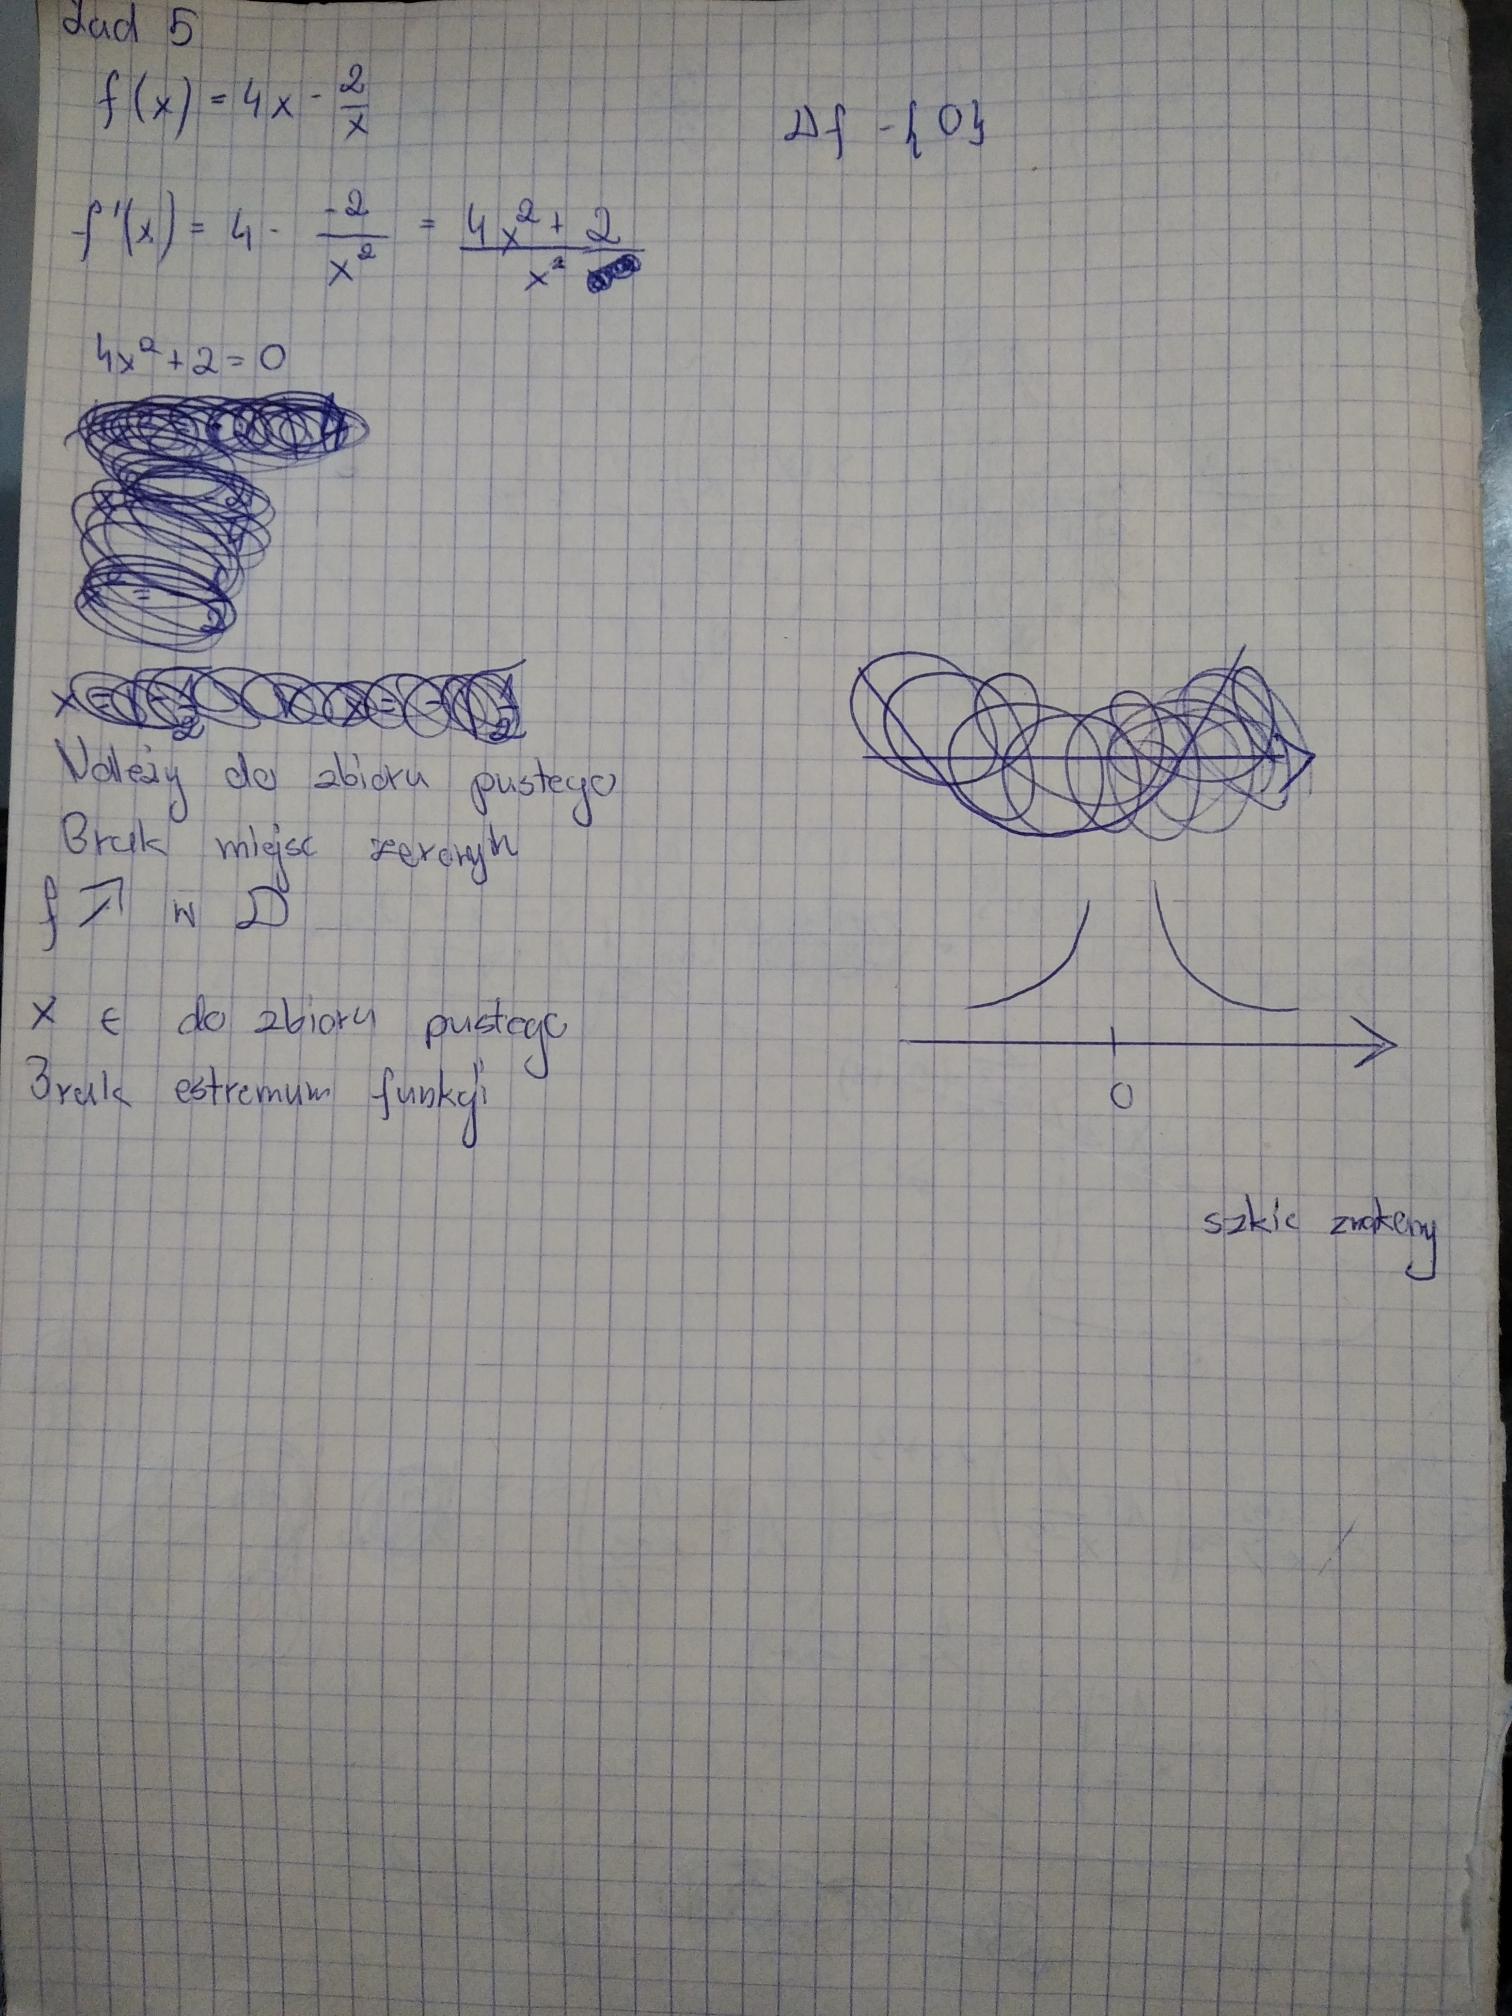 Zad 5
f(x) = 4x - 2/x
Df - {0}
f'(x) = 4 - -2/x² = 4x² + 2/x²
4x² + 2 = 0
Należy do zbioru pustego
Brak miejsc zerowyh
f ↗ w D
x ∈ do zbioru pustego
Brak estremum funkcji
0
szkic znakowy